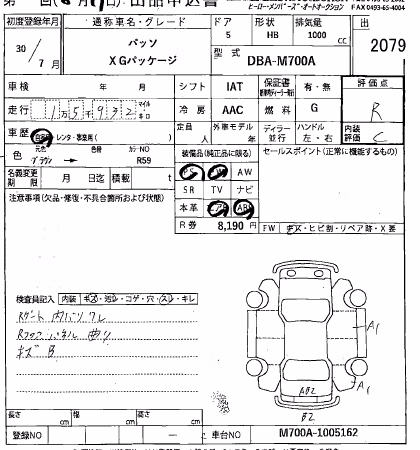 ヒーローメンバーズ・オートオークション
FAX0493-65-4004
初度登録年月 通称車名・グレード ドア 形状 排気量 出
30/7月 パッソ 5 HB 1000 cc 2079
XGパッケージ 型式 DBA-M700A
車検 年 月 シフト IAT 保証書 有・無 評価点
走行 1万5千932 マイル キロ 冷房 AAC 燃料 G R
車歴 自家用 レンタ・事業用 定員 人 外車モデル 年 ディラー 並行 ハンドル 左・右 内装評価 C
色 元色 ブラウン 色替 カラーNO R59 装備品(純正品に限る) セールスポイント(正常に機能するもの)
名義変更期限 月 日迄 積載 t PS PW AW
SR TV ナビ
注意事項(欠品・修復・不具合箇所および状態) 本革 エアB ABS
R券 8,190円 FW キズ・ヒビ割・リペア跡・X要
検査員記入 内装 キズ・汚レ・コゲ・穴・スレ・キレ
キズ B
A1
A1
AB2
B2
長さ cm 幅 cm 高さ cm
登録NO 車台NO M700A-1005162